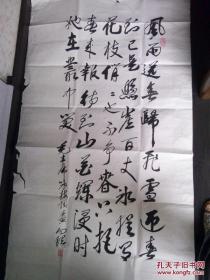 風雨送春歸飛雪迎春
到已是懸崖百丈冰猶有
花枝俏俏也不争春只把
春来報待到山花爛漫时
她在叢中笑 毛主席